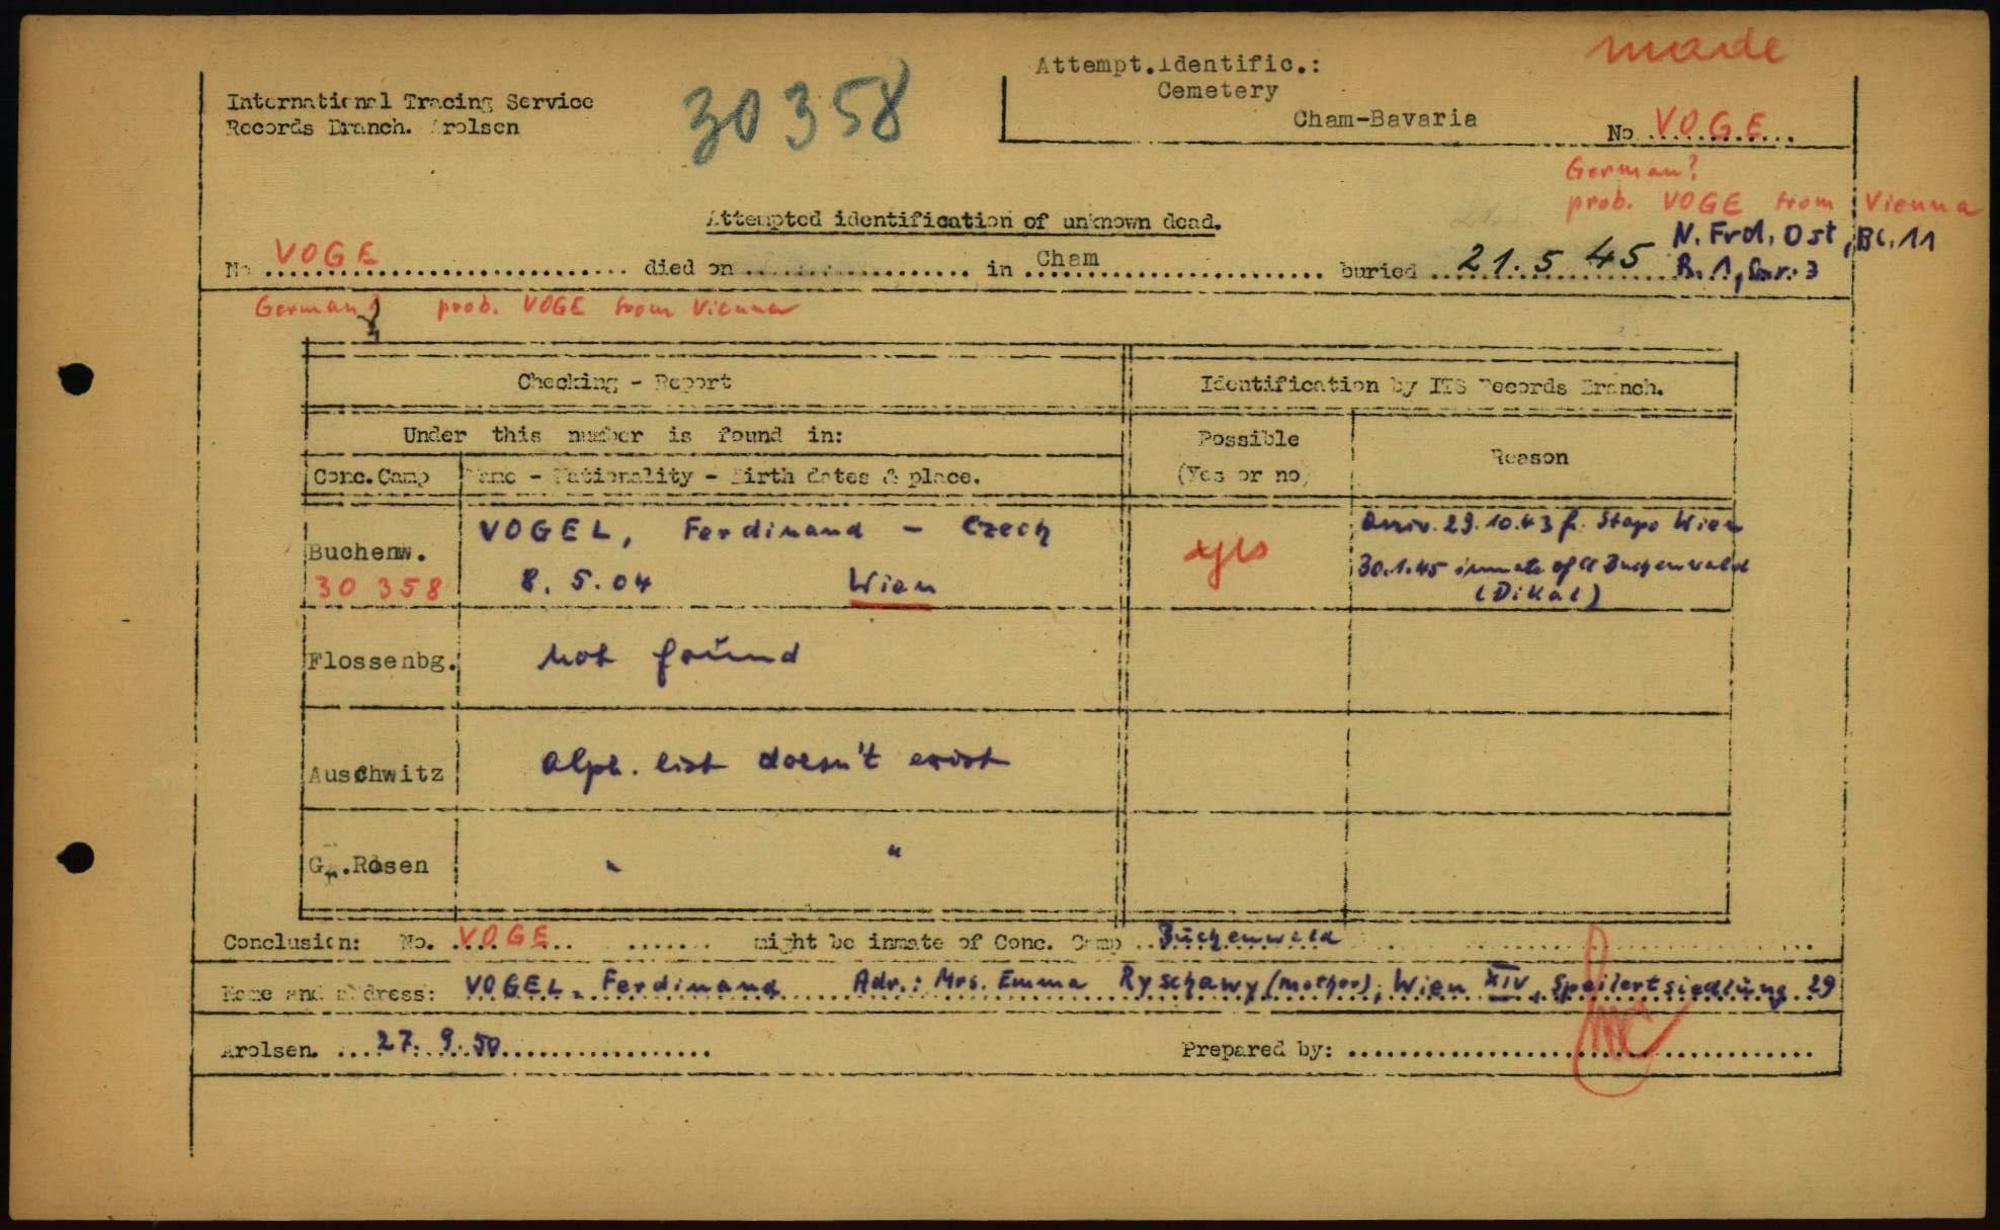 made
Attempt.identific.:
Cemetery
Cham-Bavaria
No VOGE
International Tracing Service
Records Branch. Arolsen
30358
German?
prob. VOGE from Vienna
Attempted identification of unknown dead.
N. Frd. Ost, Bl. 11
R. 1, Gr. 3
No VOGE died on in Cham buried 21. 5. 45
German? prob. VOGE from Vienna
Checking - Report
Identification by ITS Records Branch.
Under this number is found in:
Possible
(Yes or no)
Reason
Conc.Camp
Name - Nationality - Birth dates & place.
Buchenw.
30 358
VOGEL, Ferdinand - Czech
8. 5. 04 Wien
yes
Arriv. 29.10.43 f. Stapo Wien
30.1.45 inmate of Cl Buchenwald
(Dikal)
Flossenbg.
not found
Auschwitz
Alph. list doesn't exist
Gr.Rosen
" "
Conclusion: No. VOGE might be inmate of Conc. Camp Buchenwald
Name and address: VOGEL, Ferdinand Adr.: Mrs. Emma Ryschawy (mother), Wien XIV, Speilertsiedlung 29
Arolsen. 27. 9. 50
Prepared by: